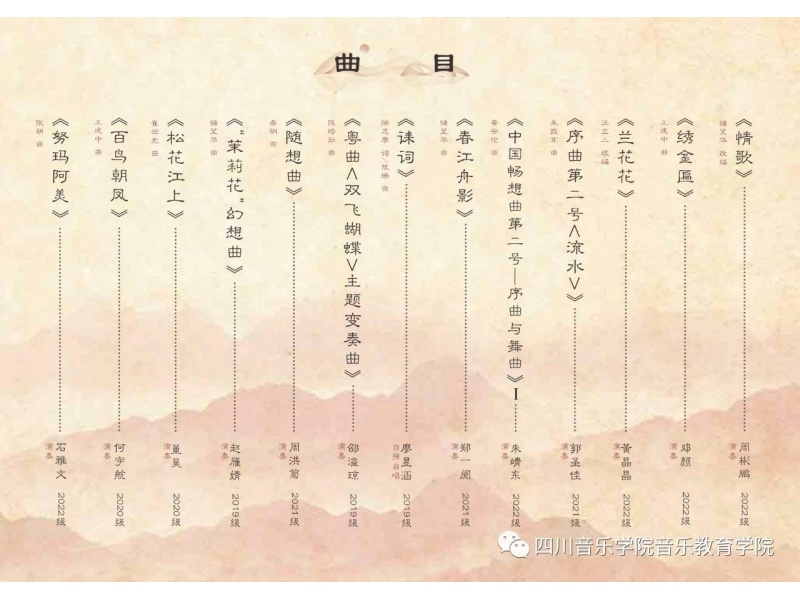 曲 目
《情歌》 周彬鹏 2022级
储望华 改编 演奏
《绣金匾》 邓颜 2022级
王建中 曲 演奏
《兰花花》 黄晶晶 2022级
汪立三 改编 演奏
《序曲第二号<流水>》 郭圣佳 2021级
朱践耳 曲 演奏
《中国畅想曲第二号—序曲与舞曲》I 朱靖东 2022级
黄安伦 曲 演奏
《春江舟影》 郑一阅 2021级
储望华 曲 演奏
《诛词》 廖昱涵 2019级
徐志摩 词 张琳 曲 自弹自唱
《粤曲<双飞蝴蝶>主题变奏曲》 邵溢琼 2019级
陈培勋 曲 演奏
《随想曲》 周洪菊 2021级
秦桐 曲 演奏
《“茉莉花”幻想曲》 赵雁婧 2019级
储望华 曲 演奏
《松花江上》 董昊 2020级
崔世光 曲 演奏
《百鸟朝凤》 何宇航 2020级
王建中 曲 演奏
《努玛阿美》 石雅文 2022级
张朝 曲 演奏
四川音乐学院音乐教育学院